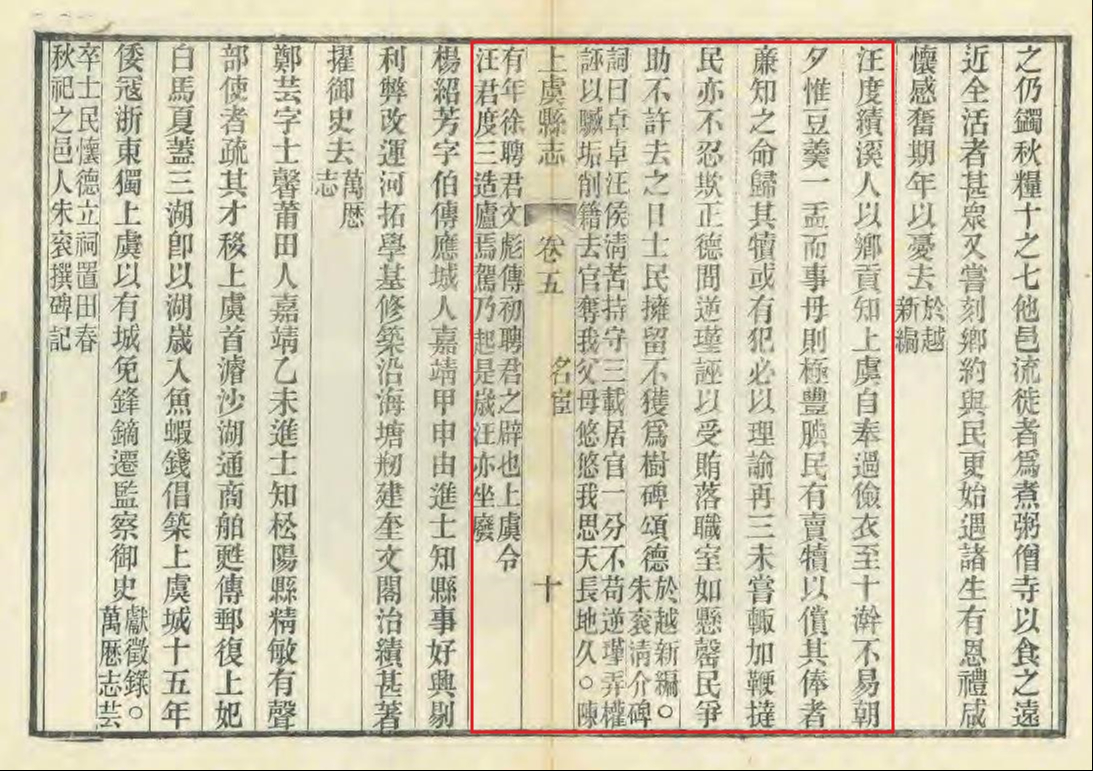 之仍蠲秋糧十之七他邑流徙者爲煮粥僧寺以食之遠
近全活者甚衆又嘗刻鄉約與民更始遇諸生有恩禮咸
懷感奮期年以憂去於越
新編
汪度績溪人以鄉貢知上虞自奉過儉衣至十澣不易朝
夕惟豆羹一盂而事母則極豐腆民有賣犢以償其俸者
廉知之命歸其犢或有犯必以理諭再三未嘗輙加鞭撻
民亦不忍欺正德間逆瑾誣以受賄落職室如懸罄民爭
助不許去之日士民擁留不獲爲樹碑頌德於越新編○
朱袞清介碑
詞曰卓卓汪侯清苦持守三載居官一分不苟逆瑾弄權
誣以贓垢削籍去官奪我父母悠悠我思天長地久○陳
上虞縣志 卷五 名宦 十
有年徐聘君文彪傳初聘君之辟也上虞令
汪君度三造廬焉駕乃起是歲汪亦坐廢
楊紹芳字伯傳應城人嘉靖甲申由進士知縣事好興剔
利弊改運河拓學基修築沿海塘剏建奎文閣治績甚著
擢御史去萬歷
志
鄭芸字士馨莆田人嘉靖乙未進士知松陽縣精敏有聲
部使者疏其才移上虞首濬沙湖通商舶甦傳郵復上妃
白馬夏葢三湖卽以湖歲入魚蝦錢倡築上虞城十五年
倭寇浙東獨上虞以有城免鋒鏑遷監察御史獻徵錄○
萬歷志芸
卒士民懷德立祠置田春
秋祀之邑人朱袞撰碑記